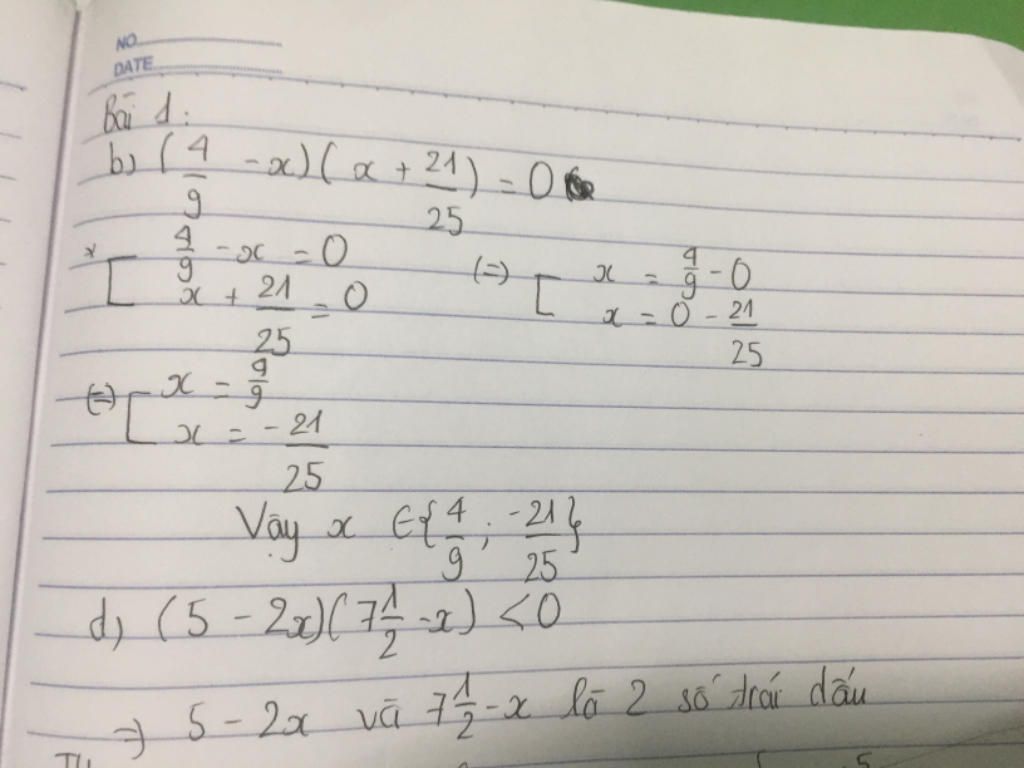 NO
DATE
Bài 1:
b) (4/9 - x)(x + 21/25) = 0
* [ 4/9 - x = 0 (=) [ x = 4/9 - 0
x + 21/25 = 0 x = 0 - 21/25
(=) [ x = 4/9
x = -21/25
Vậy x ∈ {4/9 ; -21/25}
d) (5 - 2x)(7 1/2 - x) < 0
=) 5 - 2x và 7 1/2 - x là 2 số trái dấu